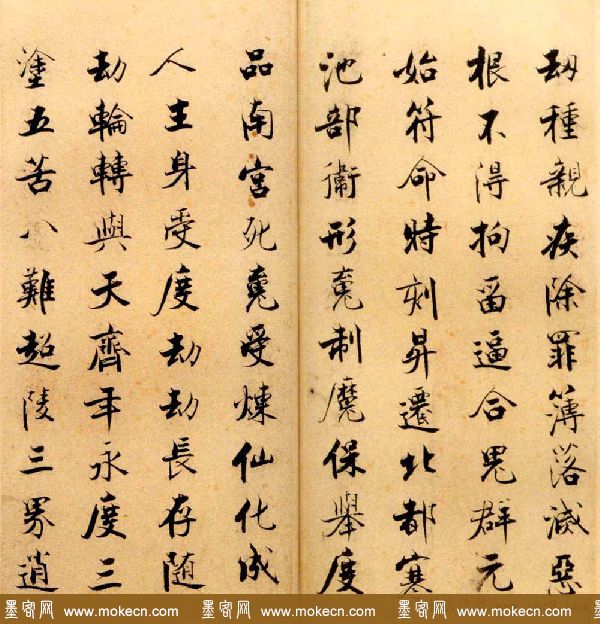 劫種親疾除罪簿落滅惡
根不得拘留逼合鬼群元
始符命時刻昇遷北都寒
池部衛形魂制魔保舉度
品南宮死魂受煉仙化成
人主身受度劫劫長存随
劫輪轉與天齊年永度三
塗五苦八難超陵三界逍
墨客网 www.mokecn.com 墨客网 www.mokecn.com 墨客网 www.mokecn.com